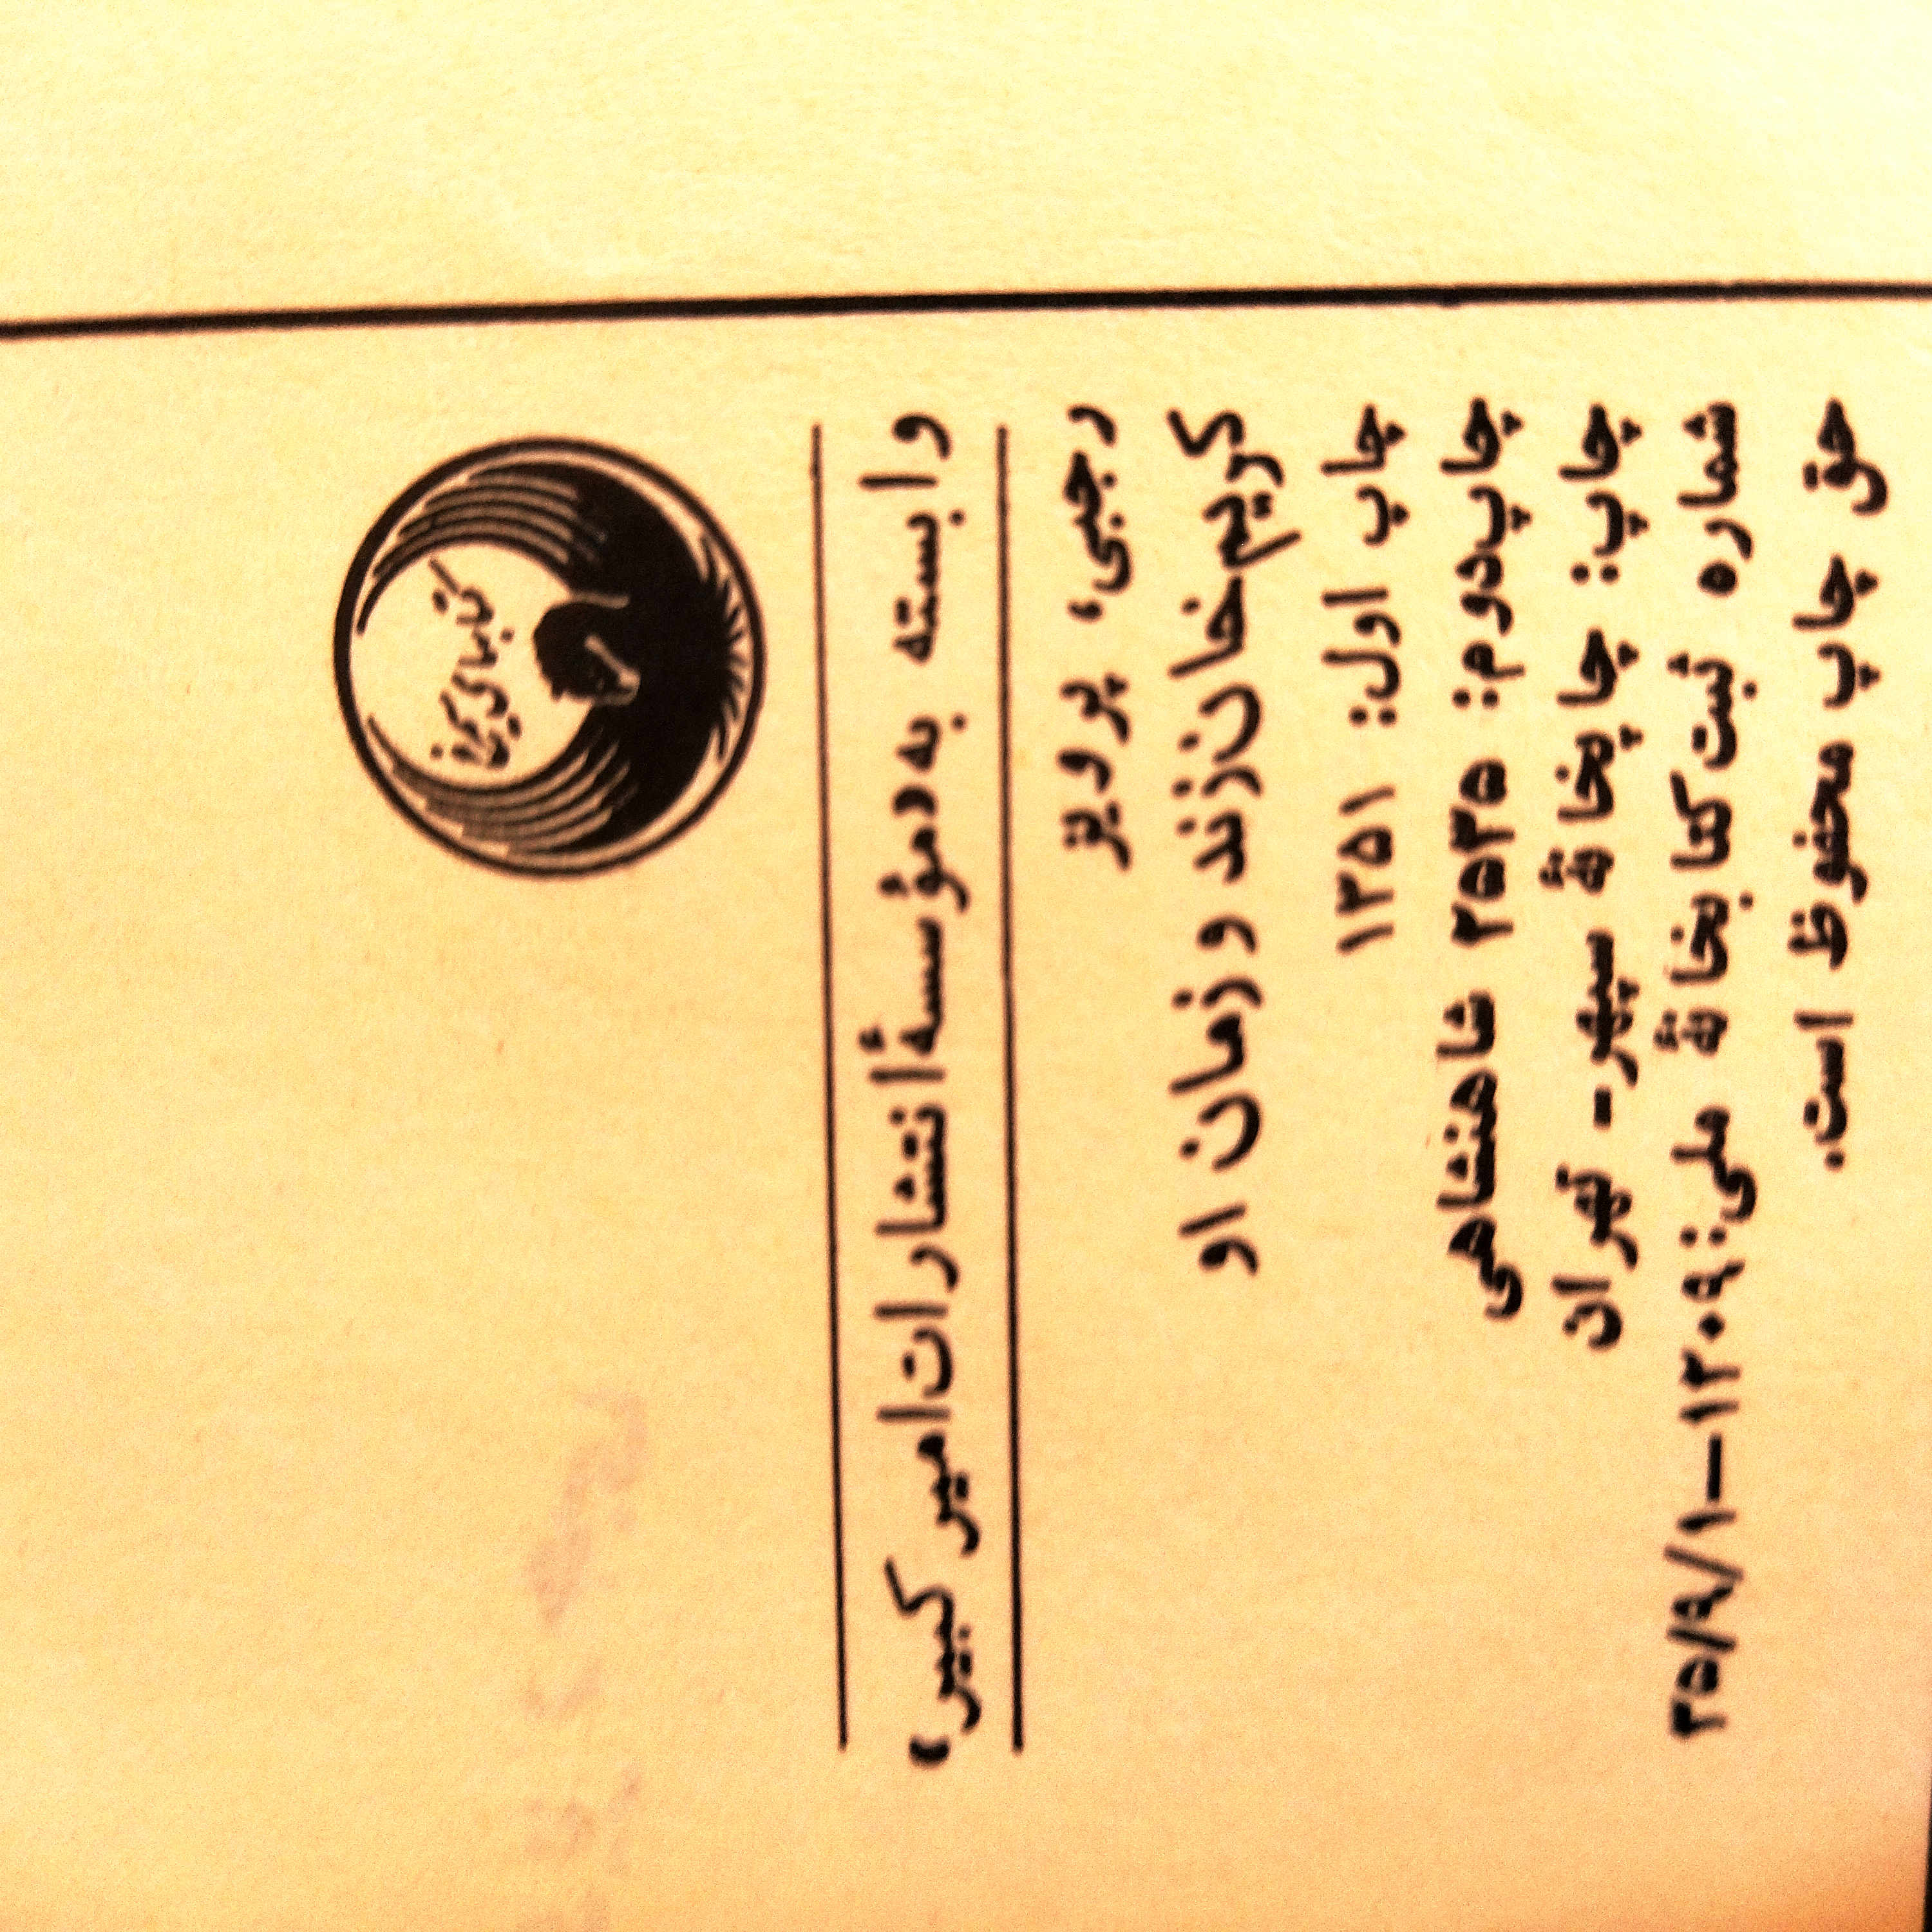 کتابهای سیمرغ
وابسته به «مؤسسهٔ انتشارات امیر کبیر»
رجبی، پرویز
کریم‌خان زند و زمان او
چاپ اول: ۱۳۵۱
چاپ دوم: ۲۵۳۵ شاهنشاهی
چاپ: چاپخانهٔ سپهر- تهران
شماره ثبت کتابخانهٔ ملی: ۱۲۰۹-۲۵/۹/۱
حق چاپ محفوظ است.